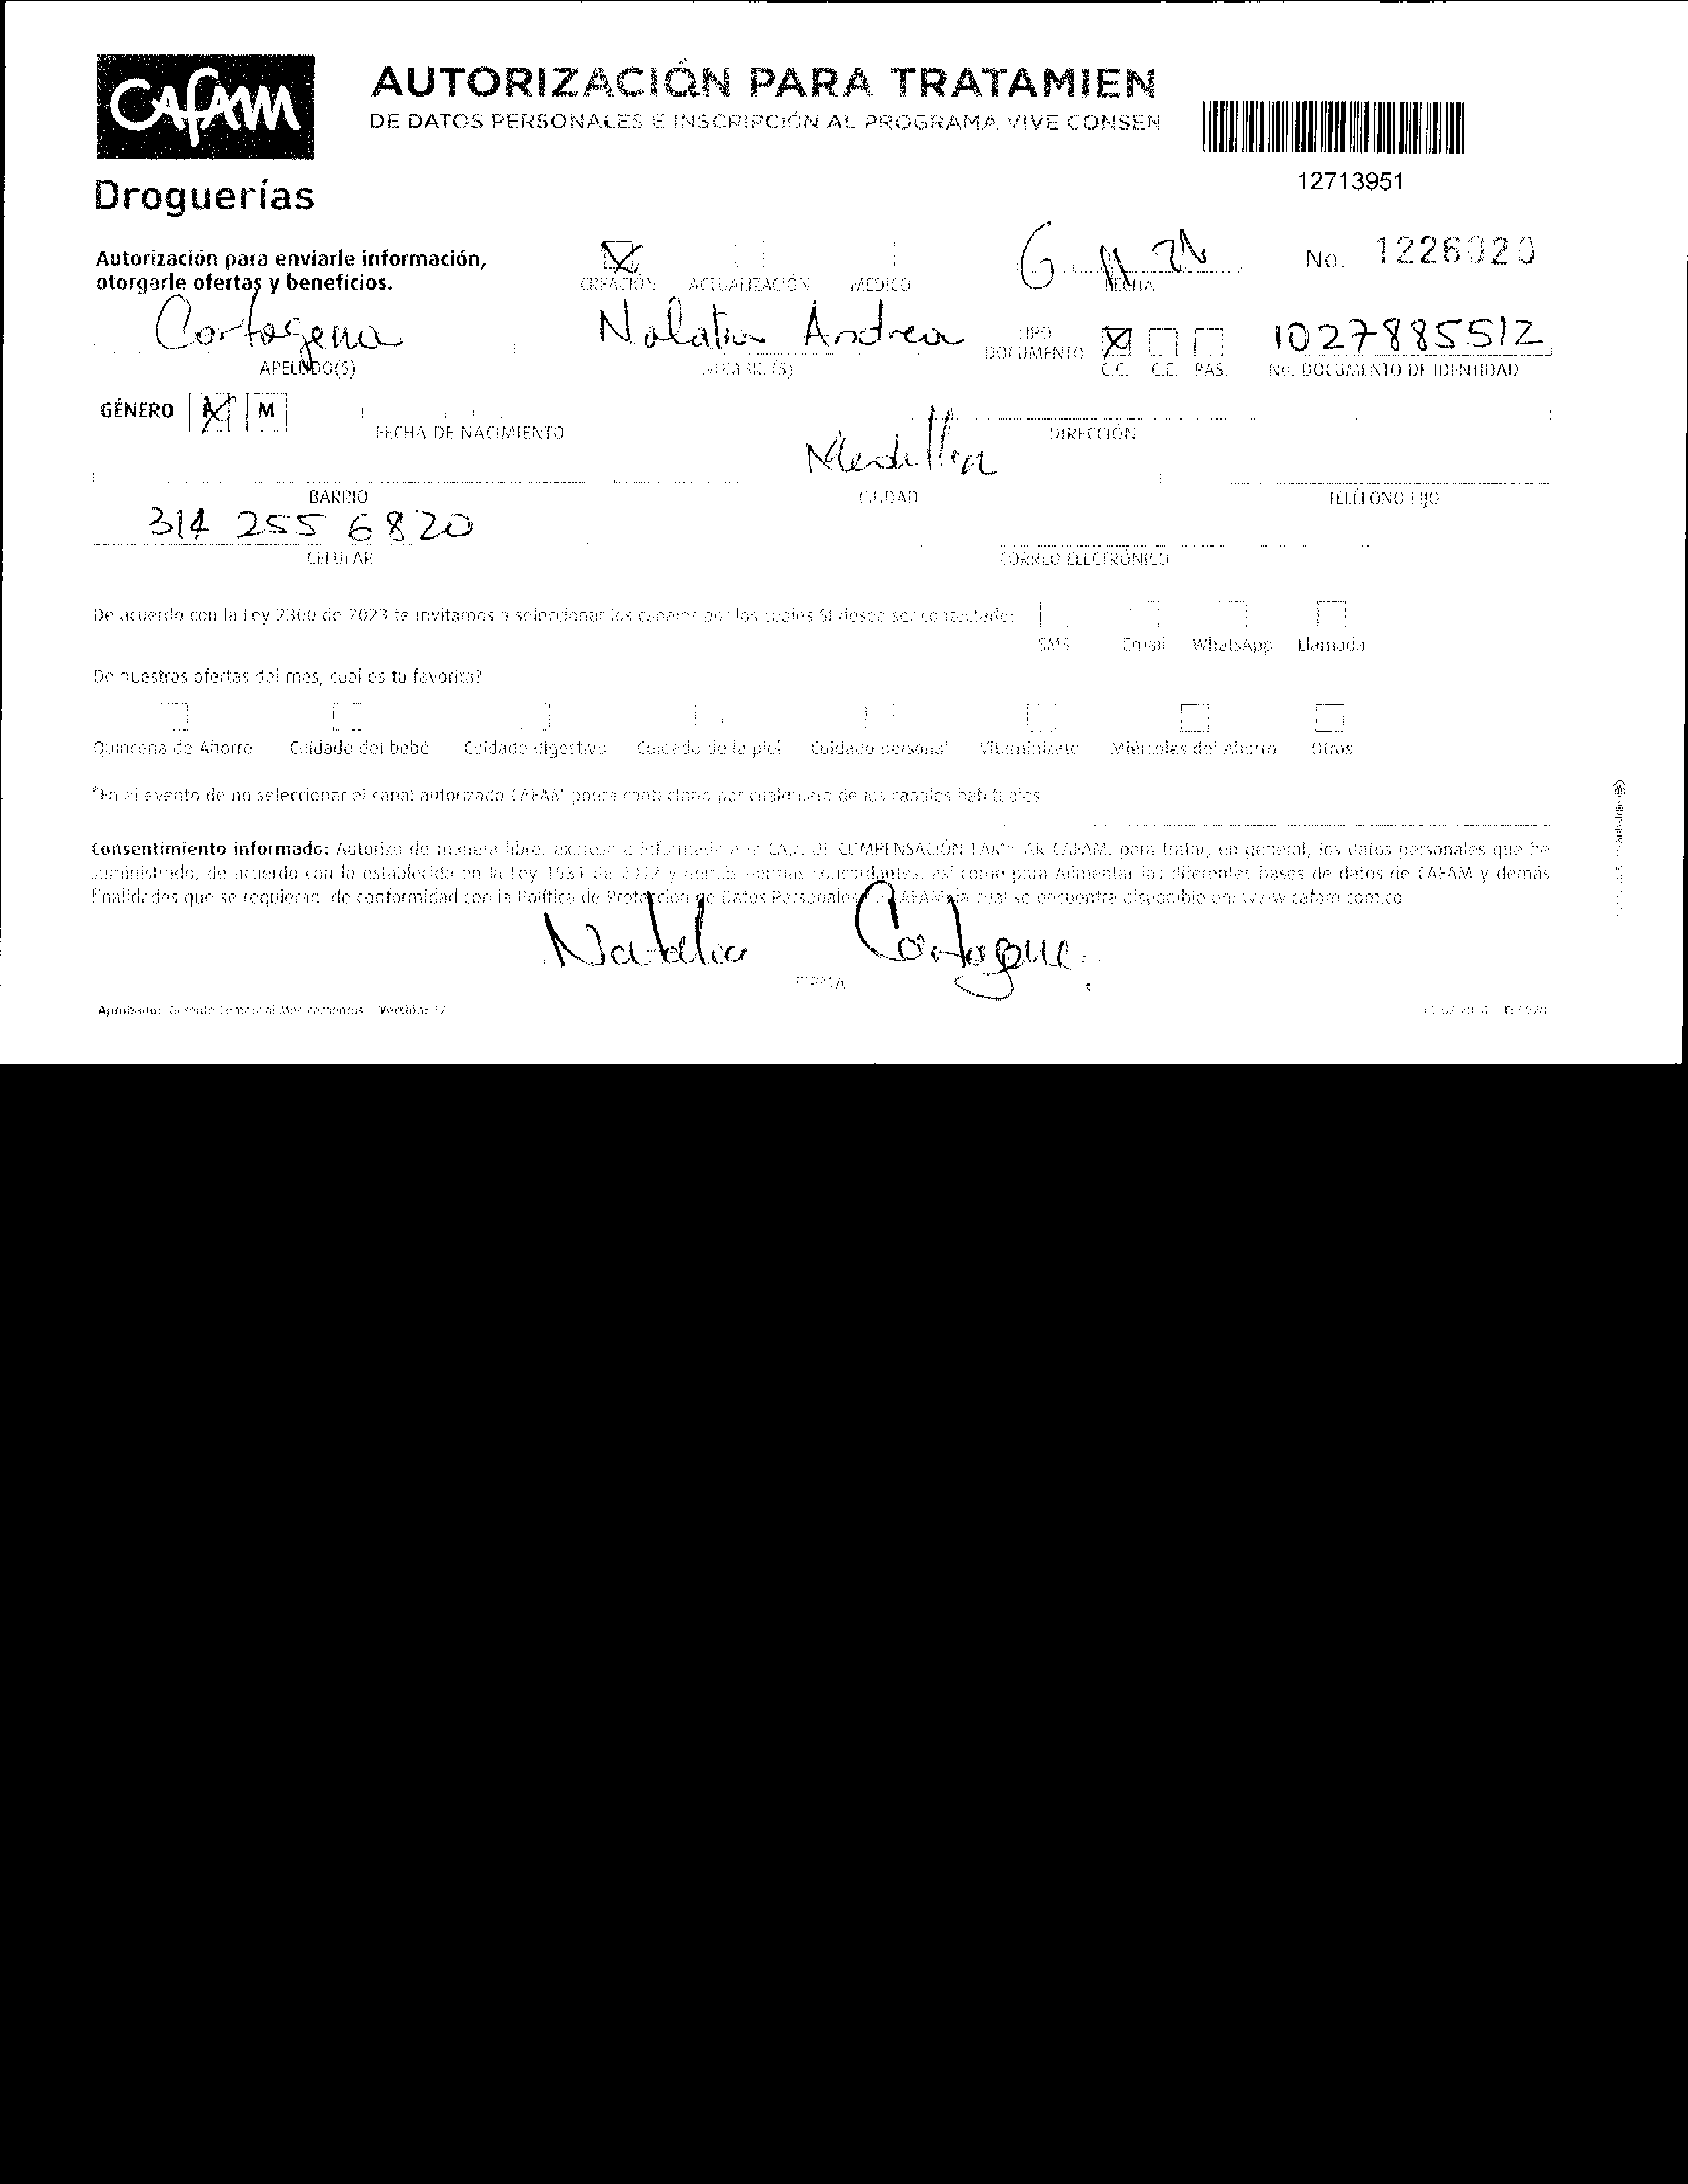 CAFAM
AUTORIZACIÓN PARA TRATAMIEN
DE DATOS PERSONALES E INSCRIPCIÓN AL PROGRAMA VIVE CONSEN
12713951
Droguerías
Autorización para enviarle información,
otorgarle ofertas y beneficios.
CREACIÓN ACTUALIZACIÓN MÉDICO
6 11 24
FECHA
No. 1226020
Cartagena
APELLIDO(S)
Natalia Andrea
NOMBRE(S)
TIPO
DOCUMENTO
C.C. C.E. PAS.
1027885512
No. DOCUMENTO DE IDENTIDAD
GÉNERO M
FECHA DE NACIMIENTO
DIRECCIÓN
BARRIO
Medellin
CIUDAD
TELÉFONO FIJO
314 255 6820
CELULAR
CORREO ELECTRÓNICO
De acuerdo con la Ley 2300 de 2023 te invitamos a seleccionar los canales por los cuales SI desea ser contactado:
SMS Email WhatsApp Llamada
De nuestras ofertas del mes, cual es tu favorita?
Quincena de Ahorro Cuidado del bebé Cuidado digestivo Cuidado de la piel Cuidado personal Vitaminízate Miércoles del Ahorro Otros
*En el evento de no seleccionar el canal autorizado CAFAM podrá contactarlo por cualquiera de los canales habituales
Consentimiento informado: Autorizo de manera libre, expresa e informada a la CAJA DE COMPENSACIÓN FAMILIAR CAFAM, para tratar, en general, los datos personales que he
suministrado, de acuerdo con lo establecido en la Ley 1581 de 2012 y demás normas concordantes, así como para Alimentar las diferentes bases de datos de CAFAM y demás
finalidades que se requieran, de conformidad con la Política de Protección de Datos Personales de CAFAM, la cual se encuentra disponible en: www.cafam.com.co
Natalia Cartagena
FIRMA
Aprobado: Gerente Comercial Medicamentos Versión: 12